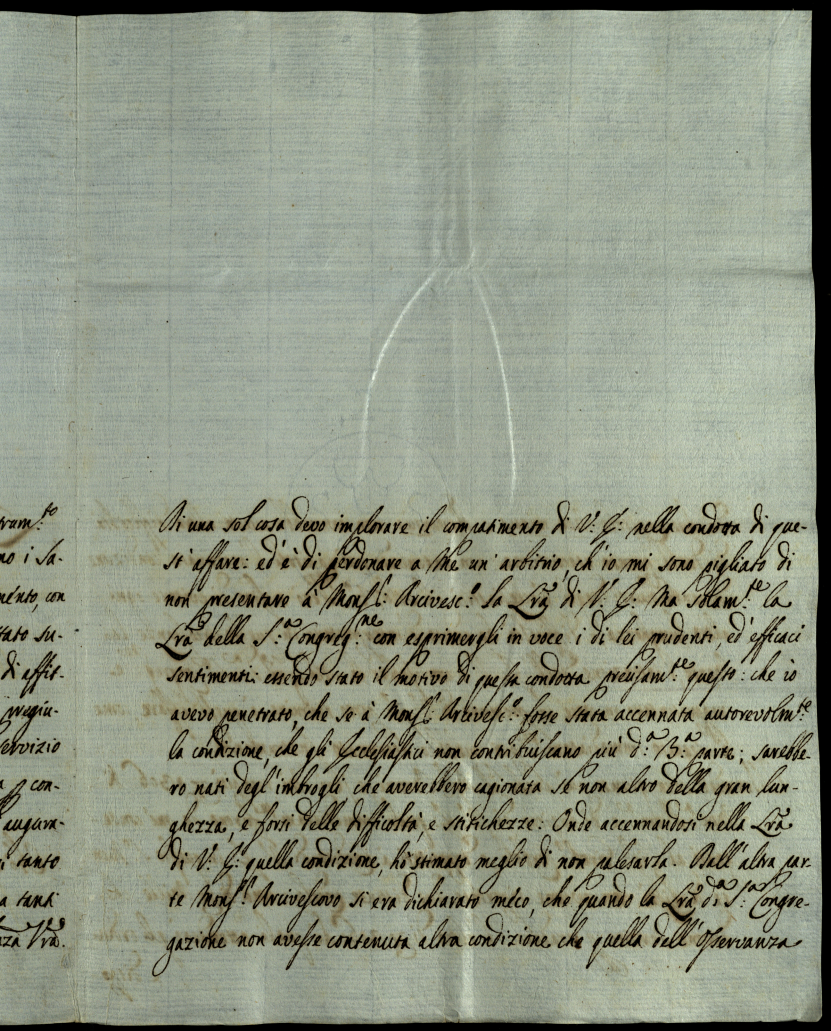 trum:to
no i Sa-
mento, con
tato su-
di affit-
pregiu-
servizio
con-
augura-
tanto
a tanti
nza Vra.
Di una sol cosa devo implorare il compatimento di V: E: nella condotta di que-
st'affare: ed'è di perdonare a Me un'arbitrio, ch'io mi sono pigliato di
non presentare à Mons.r: Arcivesc.o: la Lrã di V: E: Ma Solam.te: la
Lrã della S.a: Congreg.ne: con esprimergli in voce i di lei prudenti, ed'efficaci
sentimenti: essendo stato il motivo di questa condotta precisam.te: questo: che io
avevo penetrato, che se à Mons.r: Arcivesc.o: fosse stata accennata autorevolm.te:
la condizione, che gli Ecclesiastici non contribuiscano più d.a: 3.a: parte; sarebbe-
ro nati degl'imbrogli che averebbero cagionata se non altro della gran lun-
ghezza, e forsi delle difficoltà, e stitichezze: Onde accennandosi nella Lrã
di V: E: quella condizione, hò stimato meglio di non palesarla. Dall'altra par-
te Mons.r: Arcivescovo si era dichiarato méco, che quando la Lrã d.a: S.a: Congre-
gazione non avesse contenuta altra condizione che quella dell'Osservanza